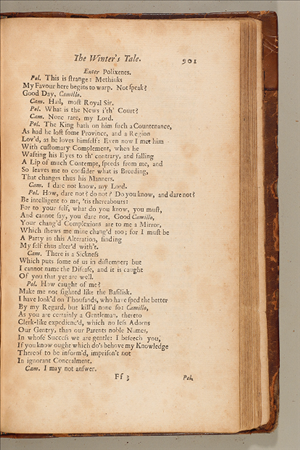 The Winter's Tale. 901
Enter Polixenes.
Pol. This is strange: Methinks
My Favour here begins to warp. Not speak?
Good Day, Camillo.
Cam. Hail, most Royal Sir.
Pol. What is the News i'th' Court?
Cam. None rare, my Lord.
Pol. The King hath on him such a Countenance,
As had he lost some Province, and a Region
Lov'd, as he loves himself: Even now I met him
With customary Complement, when he
Wafting his Eyes to th' contrary, and falling
A Lip of much Contempt, speeds from me, and
So leaves me to consider what is Breeding,
That changes thus his Manners.
Cam. I dare not know, my Lord.
Pol. How, dare not? do not? Do you know, and dare not?
Be intelligent to me, 'tis thereabouts:
For to your self, what do you know, you must,
And cannot say, you dare not. Good Camillo,
Your chang'd Complexions are to me a Mirror,
Which shews me mine chang'd too; for I must be
A Party in this Alteration, finding
My self thus alter'd with't.
Cam. There is a Sickness
Which puts some of us in distemper; but
I cannot name the Disease, and it is caught
Of you that yet are well.
Pol. How caught of me?
Make me not sighted like the Basilisk.
I have look'd on Thousands, who have sped the better
By my Regard, but kill'd none so: Camillo,
As you are certainly a Gentleman, thereto
Clerk-like experienc'd, which no less Adorns
Our Gentry, than our Parents noble Names,
In whose Success we are gentle; I beseech you,
If you know ought which do's behove my Knowledge
Thereof to be inform'd, imprison't not
In ignorant Concealment.
Cam. I may not answer.
Ff 3 Pol.